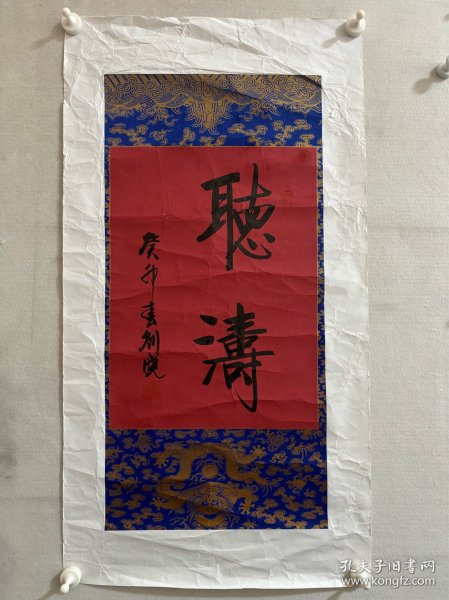 聽濤
癸卯春剑悦
孔夫子旧书网
www.kongfz.com